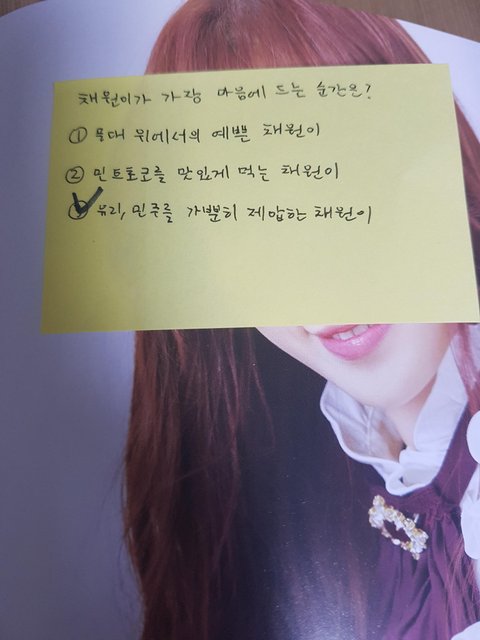 채원이가 가장 마음에 드는 순간은?
① 무대 위에서의 예쁜 채원이
② 민트초코를 맛있게 먹는 채원이
③ 유리, 민주를 가뿐히 제압하는 채원이